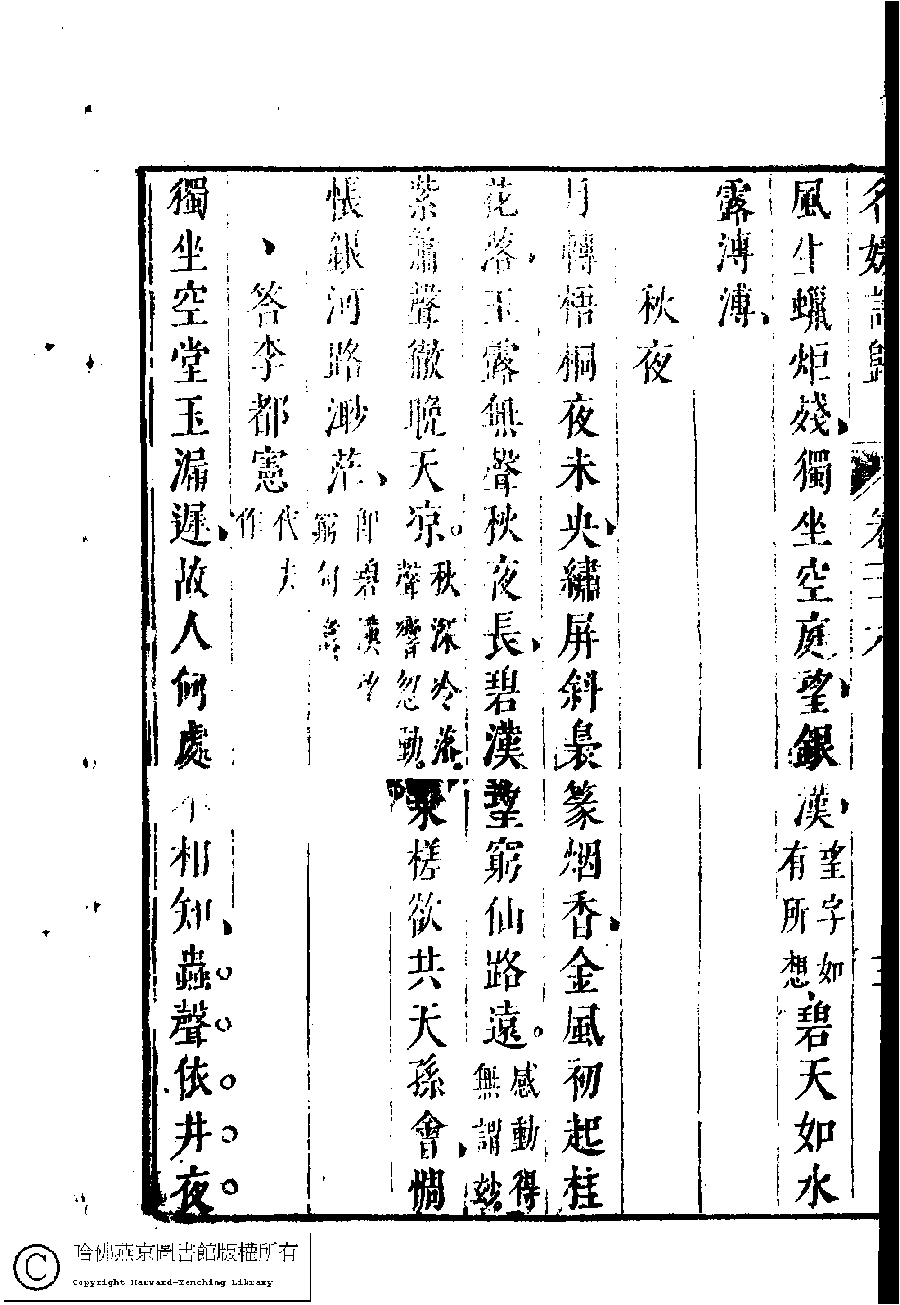 名媛詩歸 卷三六
風生蠟炬殘獨坐空庭望銀漢望字如有所想碧天如水
露漙漙
秋夜
月轉梧桐夜未央繡屏斜裊篆烟香金風初起桂
花落玉露無聲秋夜長碧漢望窮仙路遠感動得無謂妙
紫簫聲徹晚天凉秋深冷落聲響忽動乘槎欲共天孫會惆
悵銀河路渺茫卽碧漢望窮句意
答李都憲代夫作
獨坐空堂玉漏遲故人何處不相知蟲聲依井夜
哈佛燕京圖書館版權所有
Copyright Harvard-Yenching Library